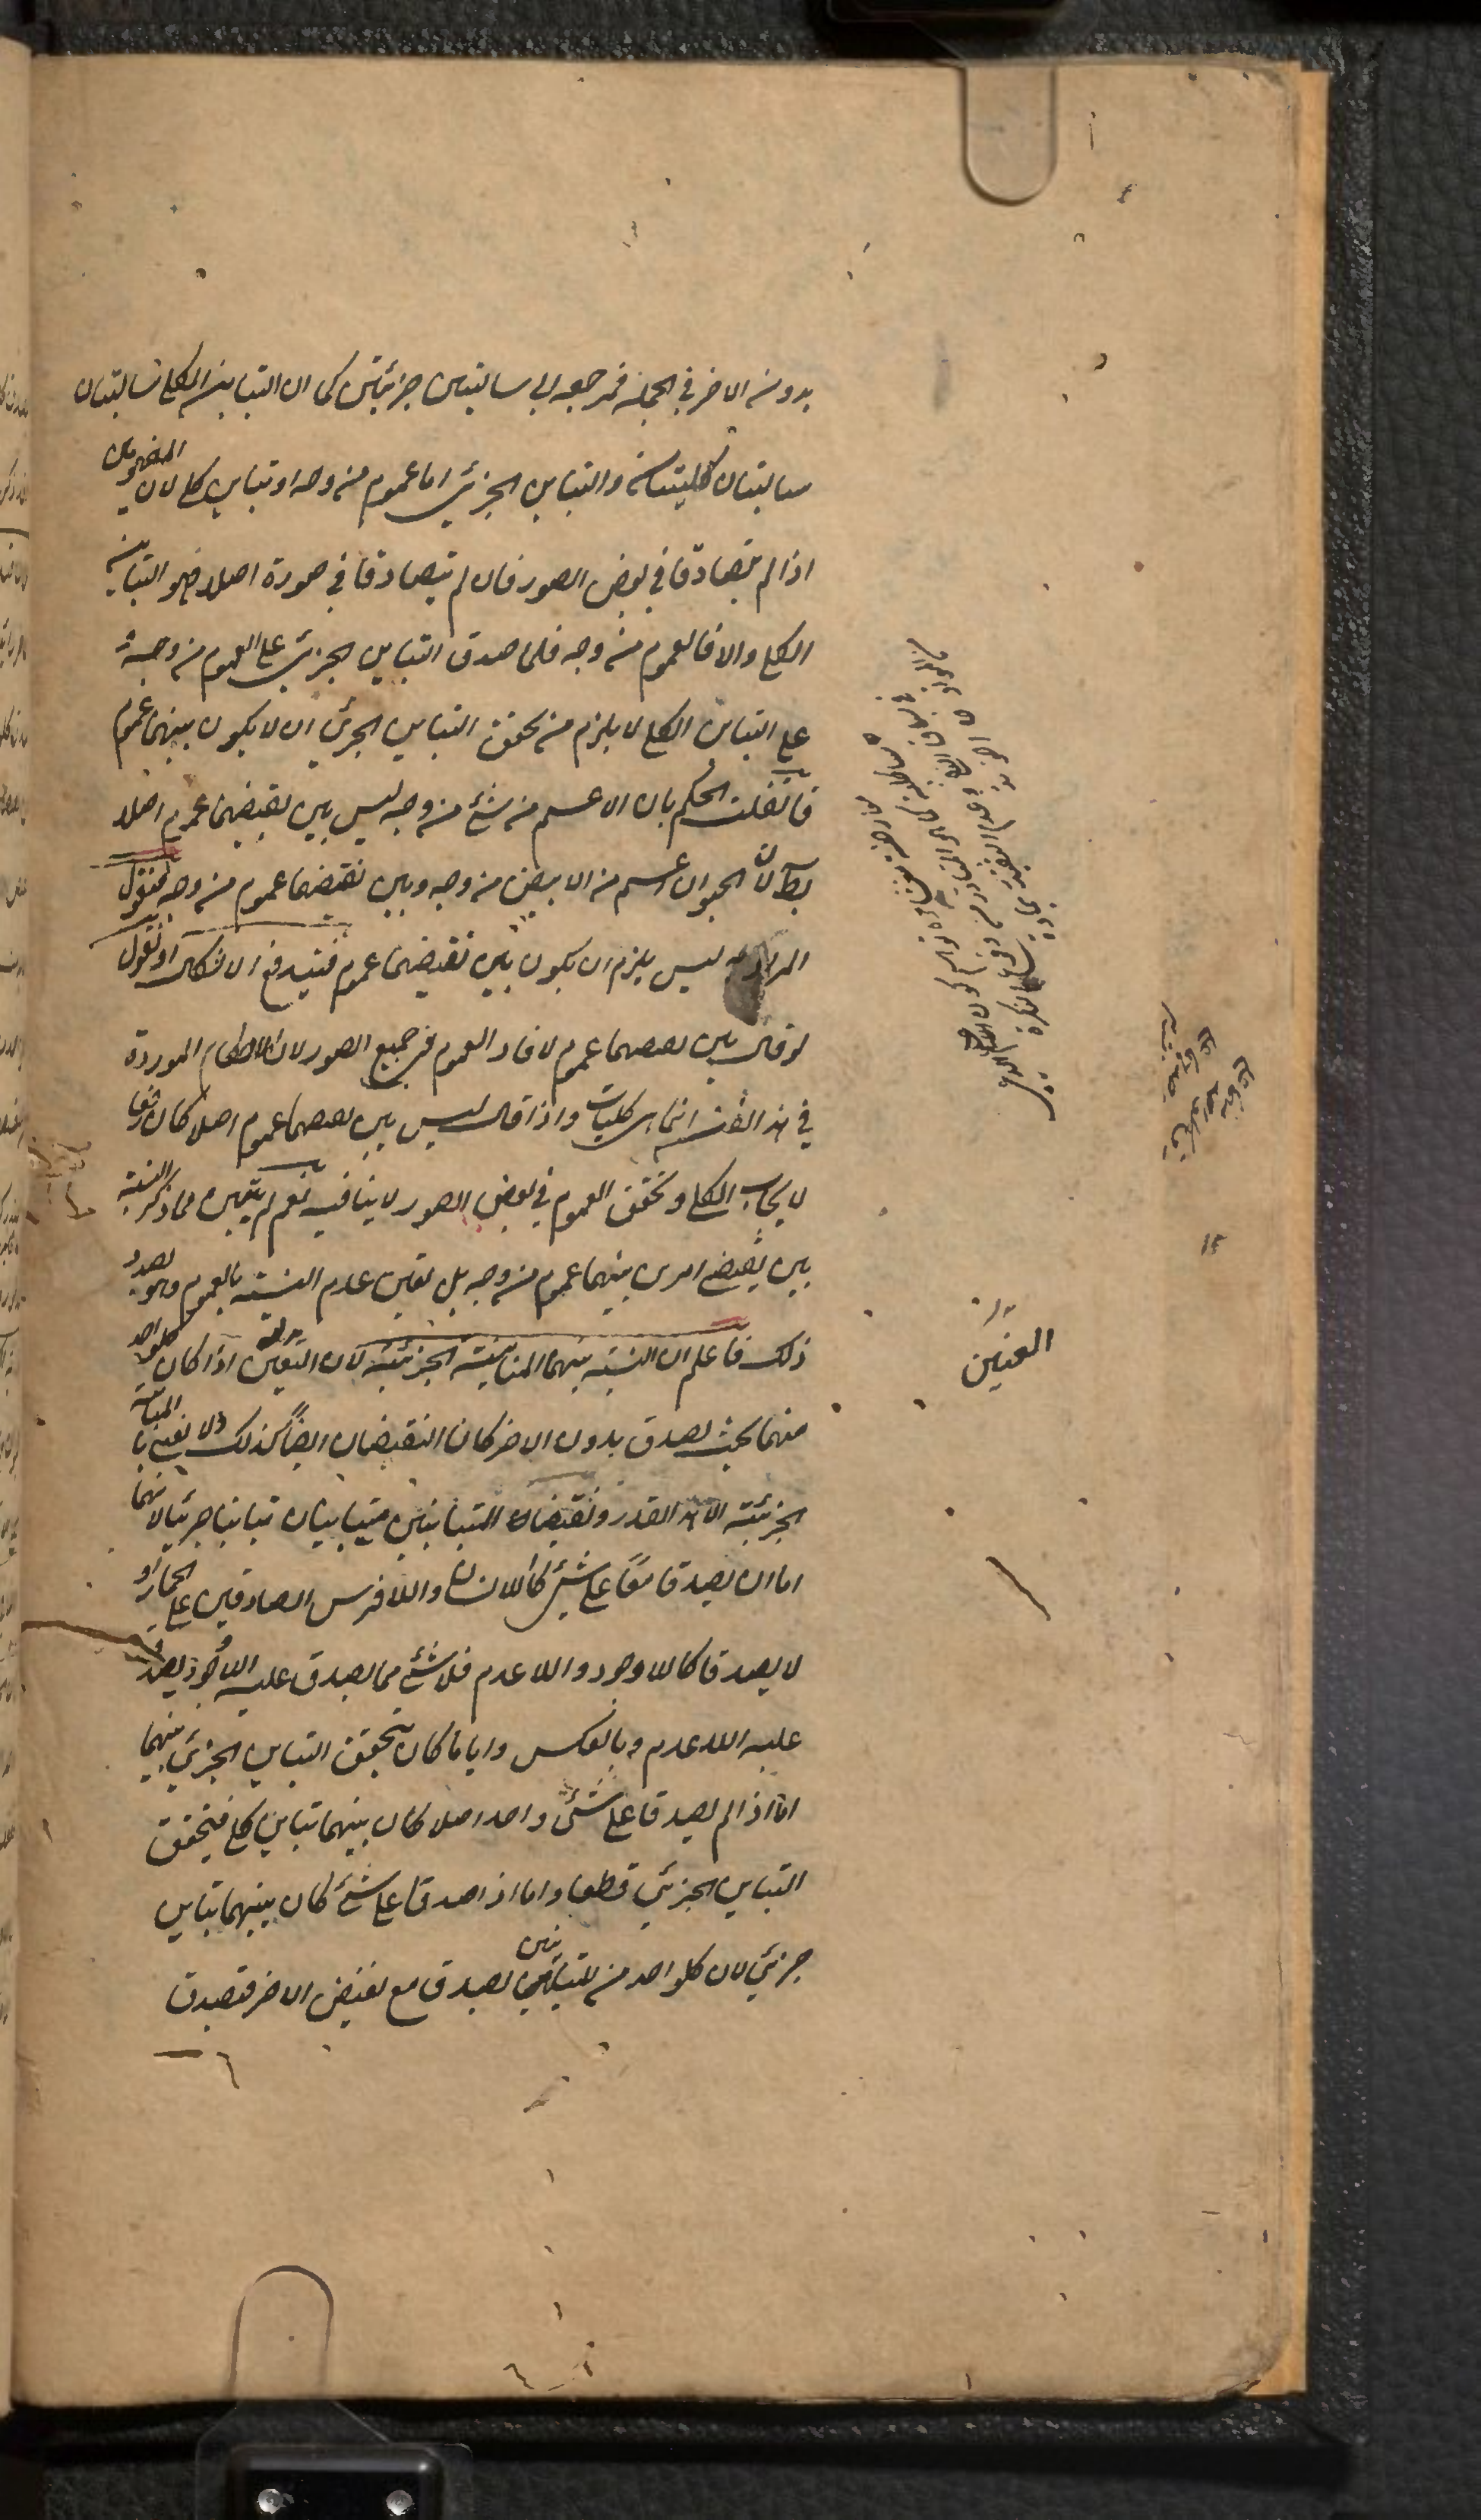 بدون الاخر في الجملة فمرجعه الى سالبتين جزئيتين كما ان التباين الكلي سالبتان
سالبتان كليتان والتباين الجزئي اما عموم من وجه او تباين كلي لان المفهومين
اذا لم يتصادقا في بعض الصور فان لم يتصادقا في صورة اصلا فهو التباين
الكلي والا فالعموم من وجه فلما صدق التباين الجزئي على العموم من وجه و
على التباين الكلي لا يلزم من تحقق التباين الجزئي ان لا يكون بينهما عموم
فان قلت الحكم بان الاعم من شئ من وجه ليس بين نقيضهما عموم اصلا
بط لان الحيوان اعم من الابيض من وجه وبين نقيضهما عموم من وجه فنقول
المراد ليس يلزم ان يكون بين نقيضهما عموم فيندفع الاشكال او نقول
لو قال بين نقيضهما عموم لافاد العموم في جميع الصور لان الاحكام الموردة
في هذا الفن انما هي كليات واذا قال ليس بين نقيضهما عموم اصلا كان رفعا
لايجاب الكلي وتحقق العموم في بعض الصور لا ينافيه نعم لم يتبين مما ذكر النسبة
بين نقيضي امرين بينهما عموم من وجه بل تبين عدم النسبة بالعموم وهو بصدد
ذلك فاعلم ان النسبة بينهما المباينة الجزئية لان العينين اذا كان كل واحد
منهما بحيث يصدق بدون الاخر كان النقيضان ايضا كذلك ولا نعني بالمباينة
الجزئية الا هذا القدر ونقيضا المتباينين متباينان تباينا جزئيا لانهما
اما ان يصدقا معا على شئ كاللاانسان واللافرس الصادقين على الحمار او
لا يصدقا كاللاوجود واللاعدم فلا شئ مما يصدق عليه اللاوجود يصدق
عليه اللاعدم وبالعكس وايا ما كان يتحقق التباين الجزئي بينهما
اما اذا لم يصدقا على شئ واحد اصلا كان بينهما تباين كلي فيتحقق
التباين الجزئي قطعا واما اذا صدقا على شئ كان بينهما تباين
جزئي لان كل واحد من المتباينين يصدق مع نقيض الاخر فيصدق
العينين